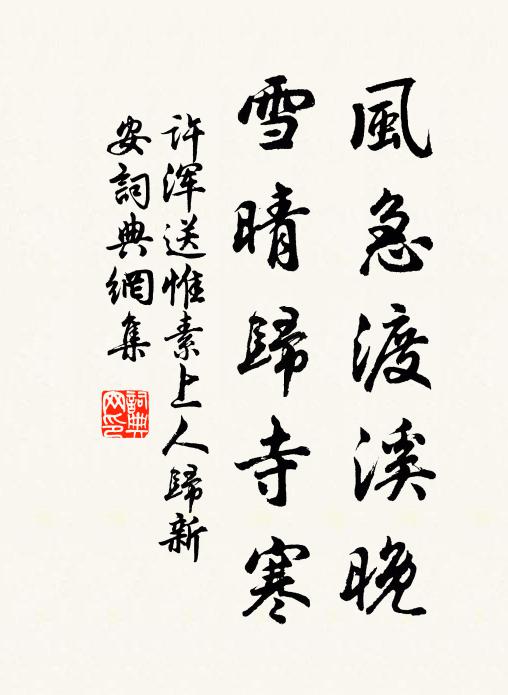 風急渡溪晚
雪晴歸寺寒
许渾送惟素上人歸新
安詞典網集
詞典
网印